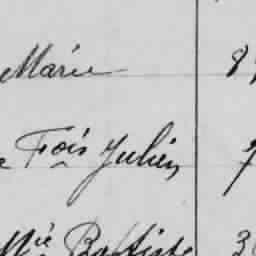 Marie
Fois Julien
Mie Baptiste